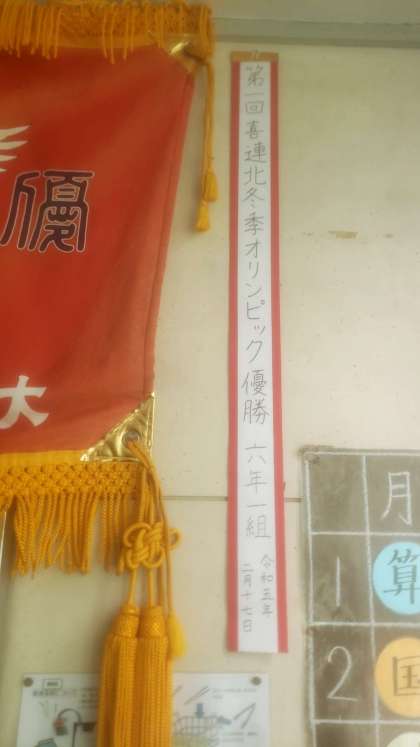 優
大
第一回喜連北冬季オリンピック優勝 六年一組
令和五年
二月十七日
月
1 算
2 国